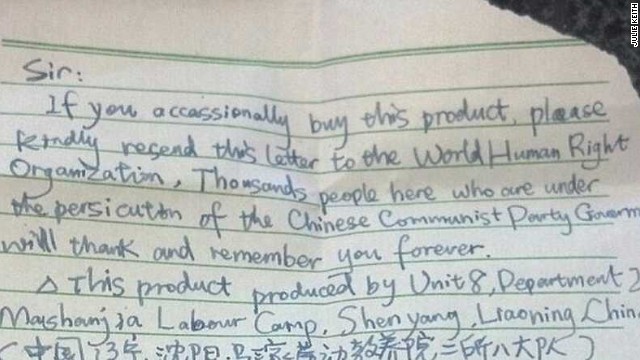 Sir:
If you accassionally buy this product, please
kindly resend this letter to the World Human Right
Organization, Thousands people here who are under
the persicution of the Chinese Communist Party Governm
will thank and remember you forever.
△ This product produced by Unit 8, Department 2
Mashanjia Labour Camp, Shenyang, Liaoning, Chin
(中国,辽宁,沈阳,马三家劳动教养院二所八大队)
JULIE KEITH